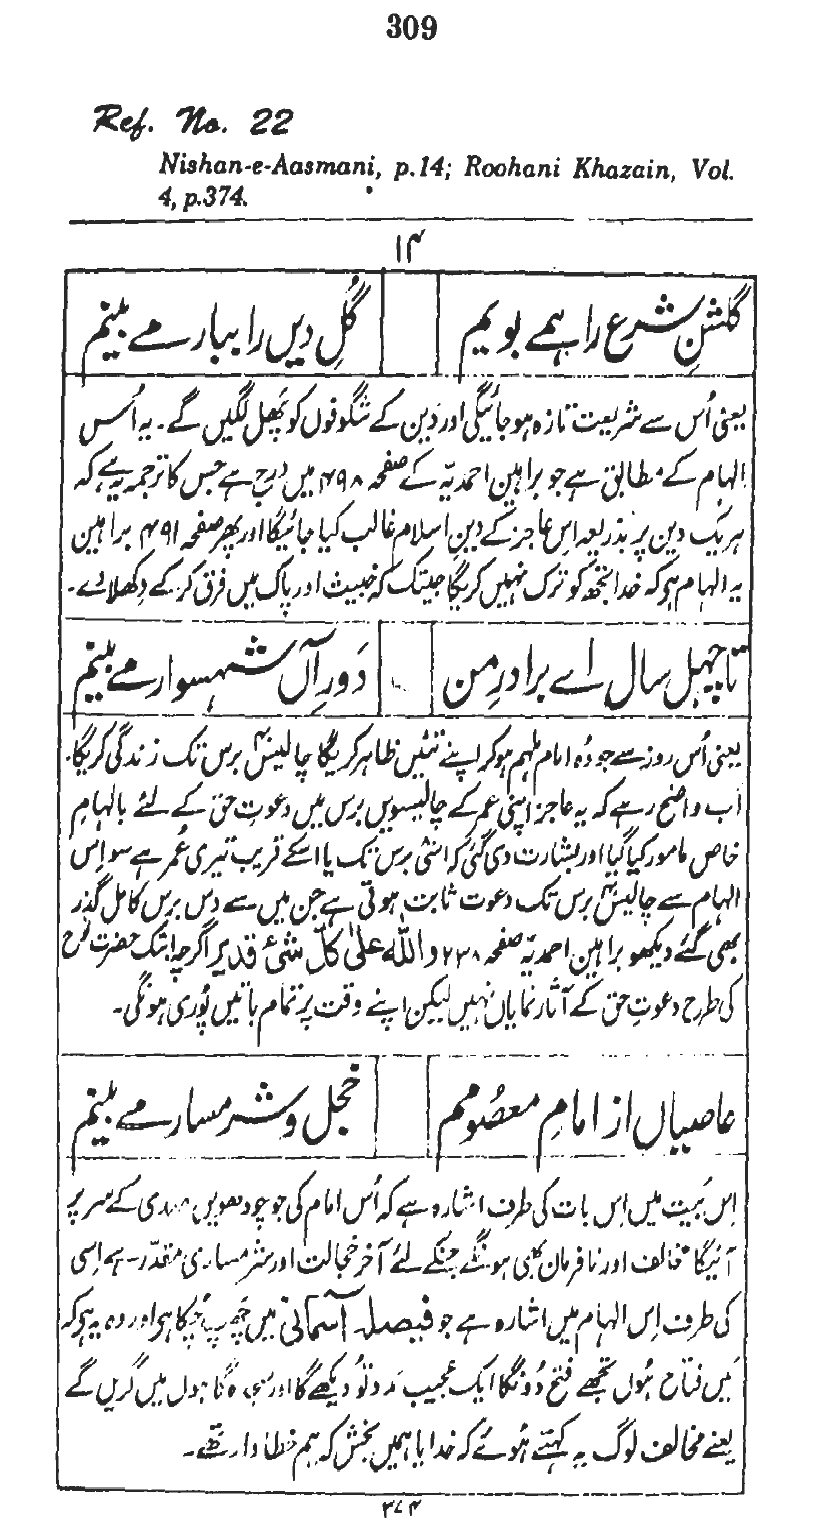 309
Ref. No. 22
Nishan-e-Aasmani, p.14; Roohani Khazain, Vol.
4, p.374.
۱۴
گلشنِ شرع را ہمے بویم گُلِ دیں را ببار مے بینم
یعنی اُس سے شریعت تازہ ہو جائیگی اور دین کے شگوفوں کو پھل لگیں گے۔ یہ اُس
الہام کے مطابق ہے جو براہین احمدیہ کے صفحہ ۴۹۸ میں درج ہے جس کا ترجمہ یہ ہے کہ
ہریک دین پر بذریعہ اِس عاجز کے دینِ اسلام غالب کیا جائیگا اور پھر صفحہ ۴۹۱ براہین
یہ الہام ہو کہ خدا تجھ کو ترک نہیں کریگا جبتک کہ خبیث اور پاک میں فرق کر کے دکھلاوے۔
تا چہل سال اے برادرِ من دَورِ آں شہسوار مے بینم
یعنی اُس روز سے جو وُہ امام ملہم ہو کر اپنے تئیں ظاہر کریگا چالیس برس تک زندگی کریگا۔
اب واضح رہے کہ یہ عاجز اپنی عمر کے چالیسویں برس میں دعوتِ حق کے لئے بالہامِ
خاص مامور کیا گیا اور بشارت دی گئی کہ اسّی برس تک یا اسکے قریب تیری عُمر ہے سو اِس
الہام سے چالیس برس تک دعوت ثابت ہوتی ہے جن میں سے دس برس کامل گذر
بھی گئے دیکھو براہین احمدیہ صفحہ ۲۳۸ واللّٰہ علیٰ کلّ شئ قدیر اگرچہ ابتک حضرت نوح
کی طرح دعوتِ حق کے آثار نمایاں نہیں لیکن اپنے وقت پر تمام باتیں پُوری ہونگی۔
عاصیاں از امامِ معصومم خجل و شرمسار مے بینم
اِس بَیت میں اِس بات کی طرف اشارہ ہے کہ اُس امام کی جو چودھویں صدی کے سر پر
آئیگا مخالف اور نافرمان بھی ہونگے جنکے لئے آخر خجالت اور شرمساری مقدّر ہے اِسی
کی طرف اِس الہام میں اشارہ ہے جو فیصلہ آسمانی میں چھپ چکا ہو اور وہ یہ ہو کہ
مَیں فتاح ہُوں تجھے فتح دُونگا ایک عجیب مدد تُو دیکھے گا اور سجدہ گاہوں میں گریں گے
یعنے مخالف لوگ یہ کہتے ہُوئے کہ خدایا ہمیں بخش کہ ہم خطاوار تھے۔
۳۷۴